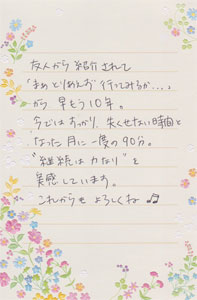 友人から紹介されて
「まぁとりあえず行ってみるか...」
から早もう10年。
今ではすっかり、失くせない時間と
なった月に一度の90分。
"継続は力なり"を
実感しています。
これからもよろしくね♫